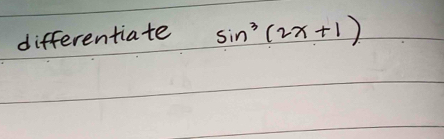 differentiate sin³ (2x+1)